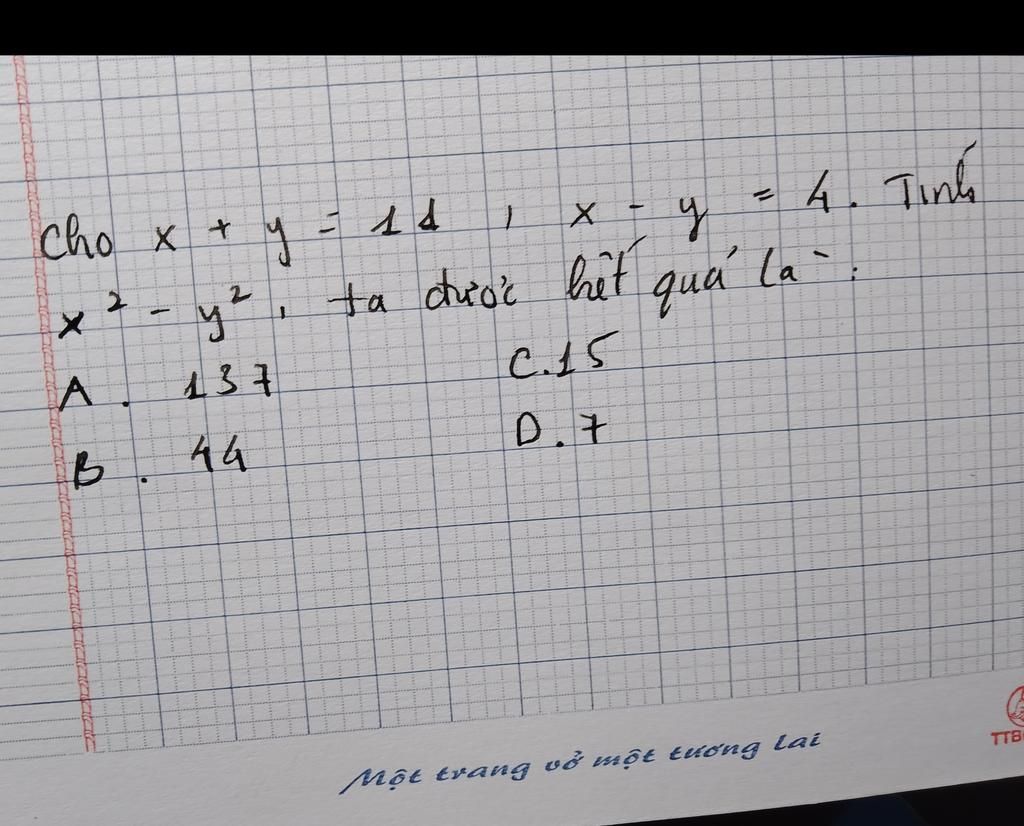 Cho x + y = 11 , x - y = 4. Tính
x² - y², ta được kết quả là :
A . 137
C. 15
B . 44
D. 7
Một trang vở một tương lai